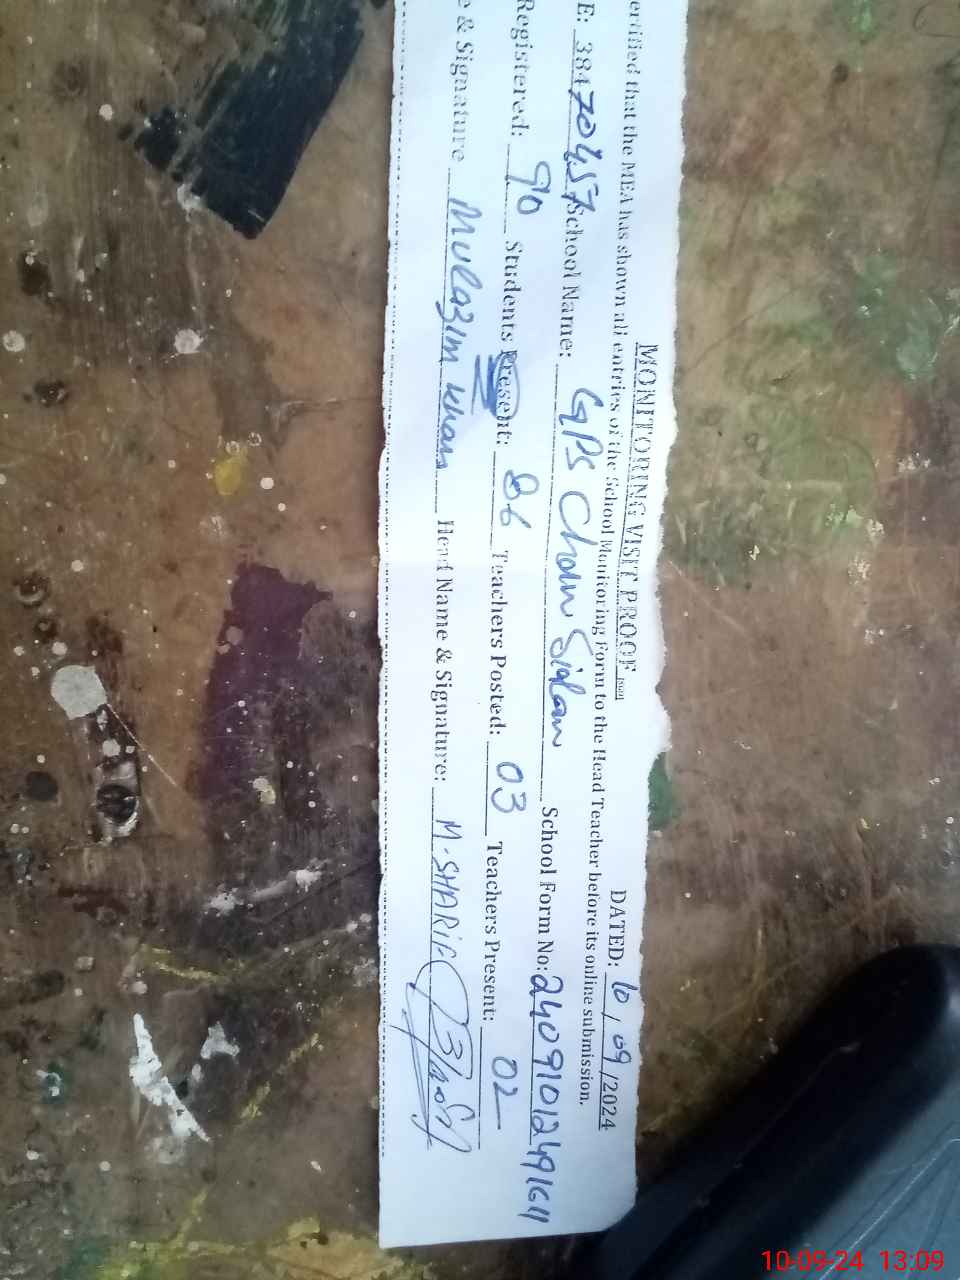 MONITORING VISIT PROOF
DATED: 10 / 09 /2024
ertified that the MEA has shown all entries of the School Monitoring Form to the Head Teacher before its online submission.
E: 38470457 School Name: GPS Chan Sialan School Form No: 24091012491611
Registered: 90 Students Present: 86 Teachers Posted: 03 Teachers Present: 02
e & Signature Mulazim Khan Head Name & Signature: M. SHARIF
10-09-24 13:09